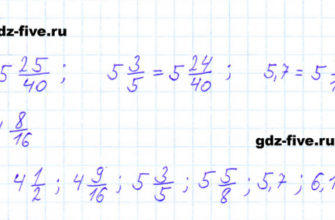 gdz-five.ru
5 25/40 ; 5 3/5 = 5 24/40 ; 5,7 = 5
8/16
gdz-five.ru
4 1/2 ; 4 9/16 ; 5 3/5 ; 5 5/8 ; 5,7 ; 6,1